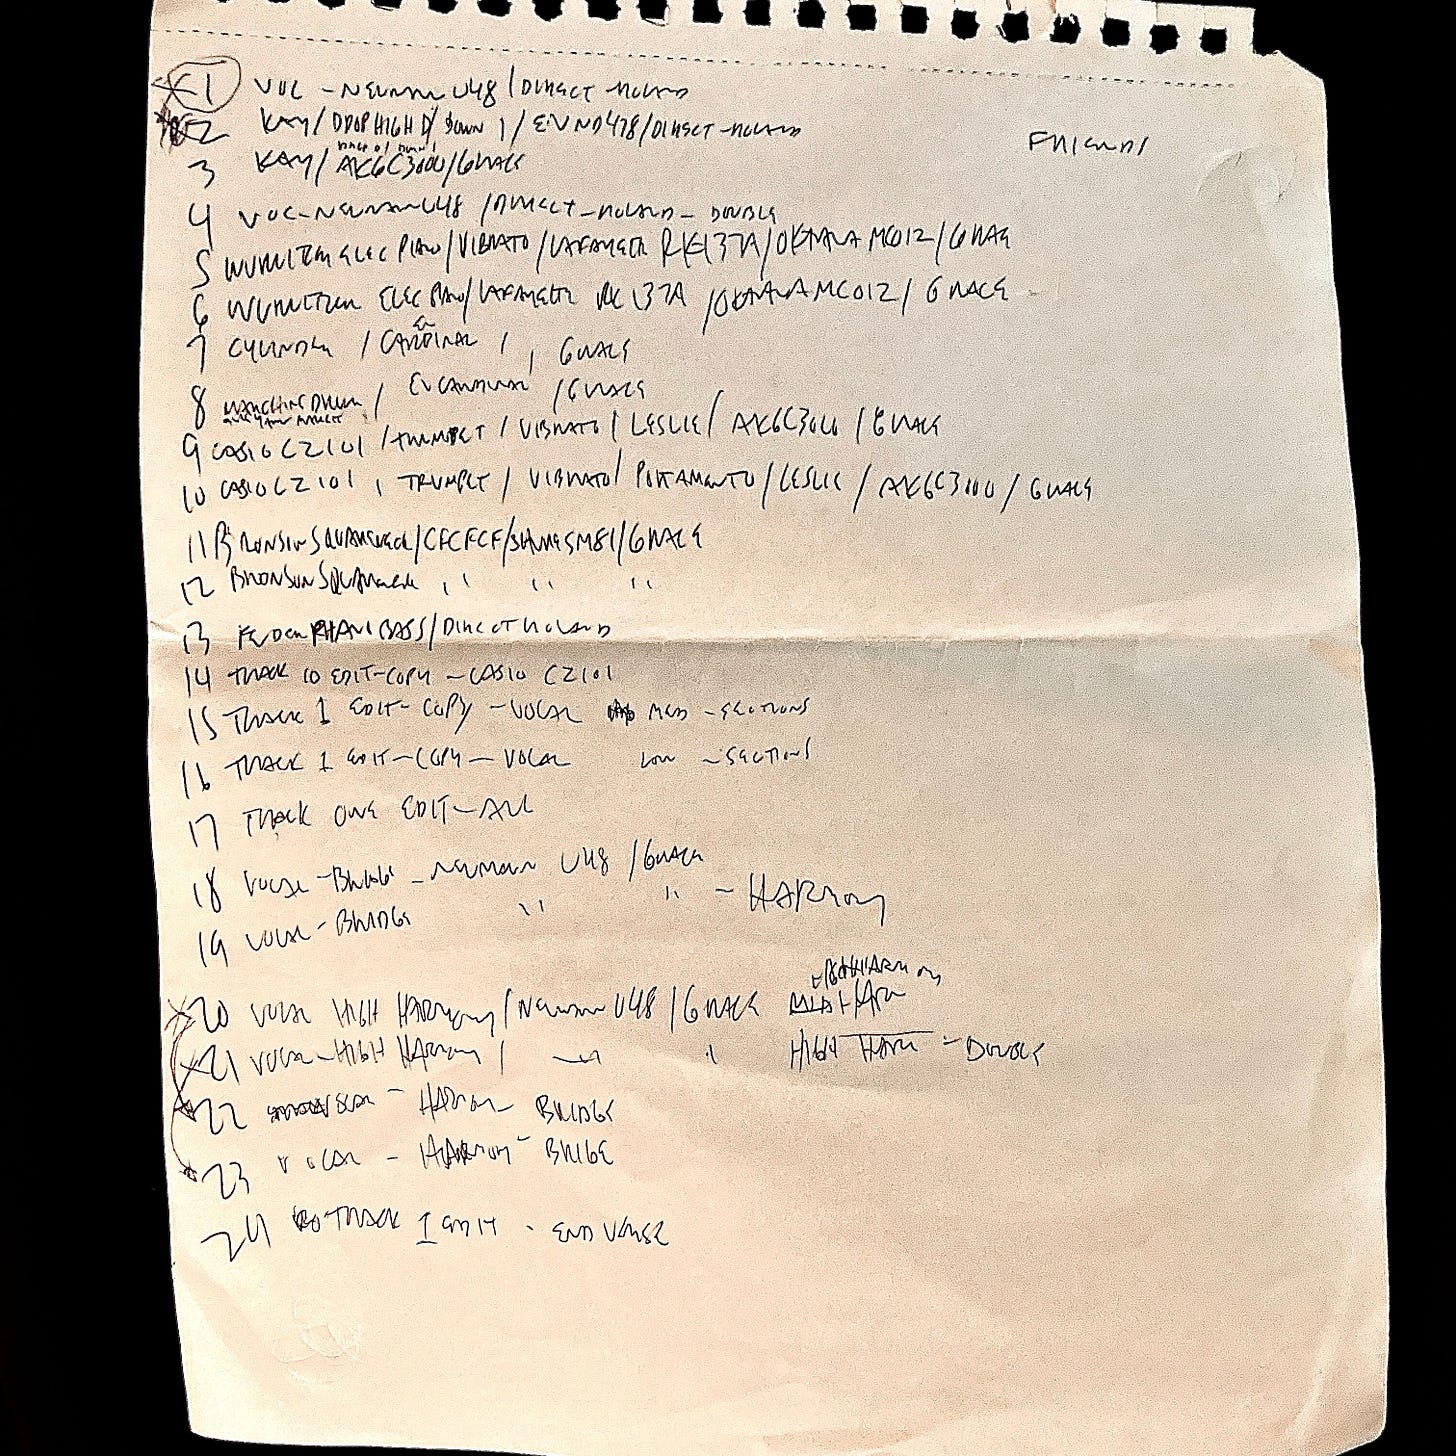 1 VOC - NEUMANN U48 / DIRECT - ROLAND
2 KAY / DROP HIGH D / DOWN 1 / EV ND478 / DIRECT - ROLAND
FRIENDS
3 KAY / AKG C3000 / GRACE
4 VOC - NEUMANN U48 / DIRECT - ROLAND - DOUBLE
5 WURLITZER ELEC PIANO / VIBRATO / LAFAYETTE RK137A / OKTAVA MC012 / GRACE
6 WURLITZER ELEC PIANO / LAFAYETTE RK 137A / OKTAVA MC012 / GRACE
7 CYLINDER / EV CARDINAL / GRACE
8 MARCHING DRUM / EV CARDINAL / GRACE
9 CASIO CZ101 / TRUMPET / VIBRATO / LESLIE / AKG C3000 / GRACE
10 CASIO CZ101 / TRUMPET / VIBRATO / PORTAMENTO / LESLIE / AKG C3000 / GRACE
11 BRONSON SQUARENECK / CFCFCF / SHURE SM81 / GRACE
12 BRONSON SQUARENECK " " "
13 FENDER RHAN BASS / DIRECT ROLAND
14 TRACK 10 EDIT - COPY - CASIO CZ101
15 TRACK 1 EDIT - COPY - VOCAL MED - SECTIONS
16 TRACK 1 EDIT - COPY - VOCAL LOW - SECTIONS
17 TRACK ONE EDIT - ALL
18 VOCAL - BRIDGE - NEUMANN U48 / GRACE
19 VOCAL - BRIDGE " " - HARMONY
20 VOCAL HIGH HARMONY / NEUMANN U48 / GRACE
21 VOCAL - HIGH HARMONY / " " HIGH HARM - DOUBLE
22 - HARMONY BRIDGE
23 VOCAL - HARMONY - BRIDGE
24 TRACK 1 EDIT - END VERSE